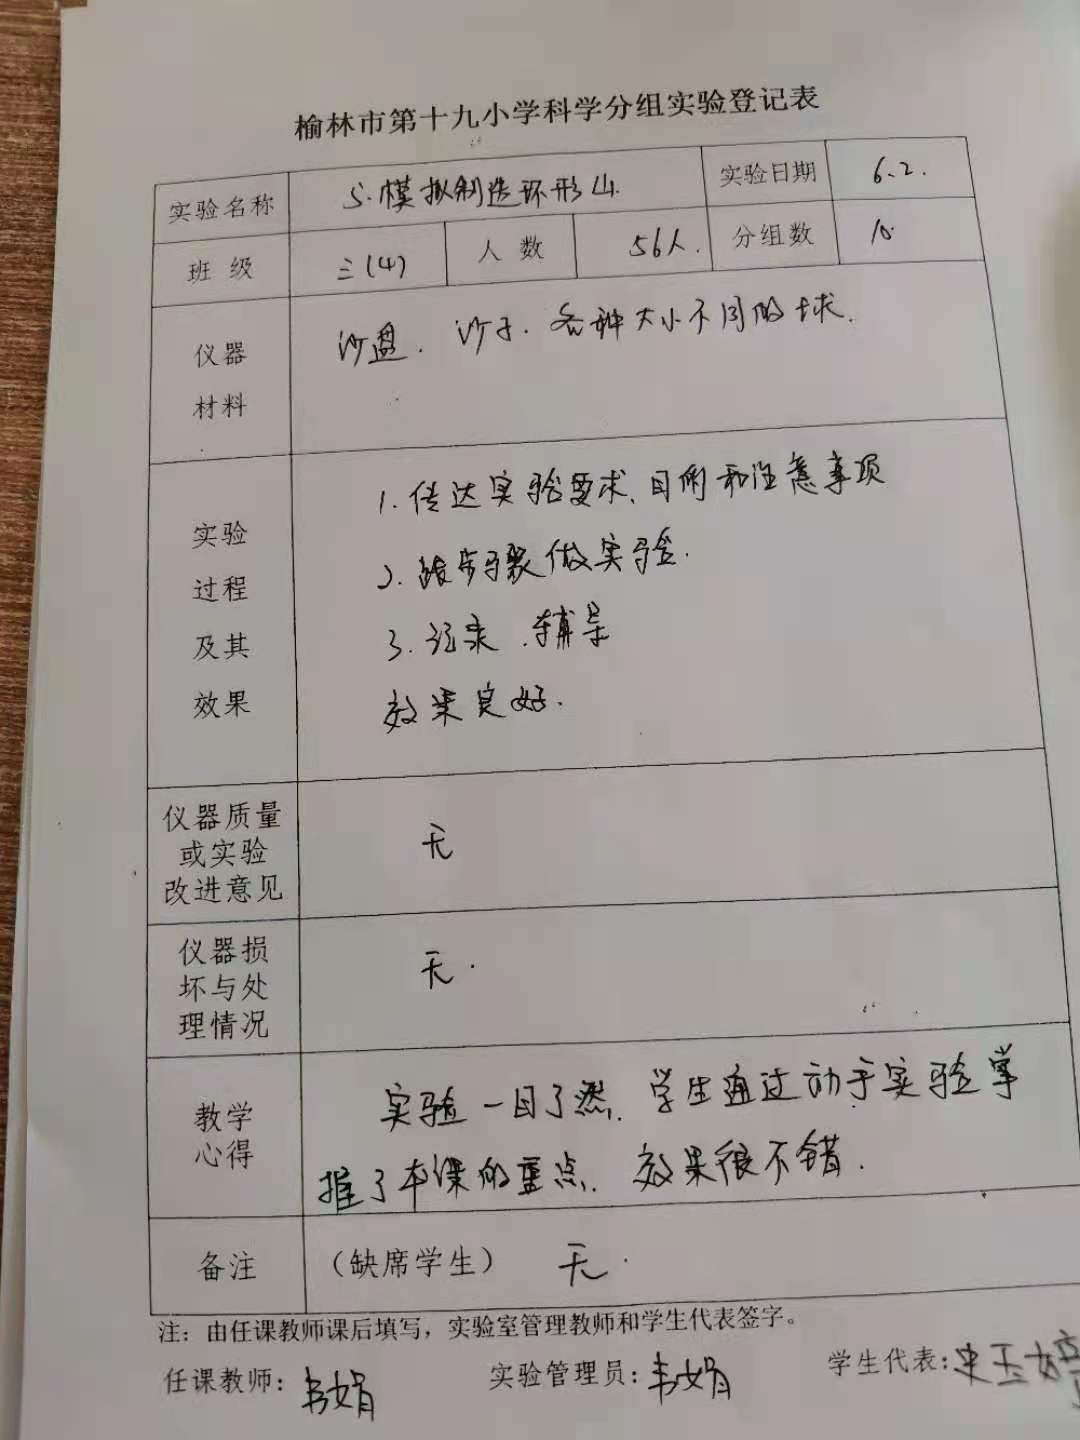 榆林市第十九小学科学分组实验登记表
实验名称 5.模拟制造环形山. 实验日期 6.2.
班 级 三(4) 人 数 56人. 分组数 10
仪器
材料
沙盘. 沙子. 各种大小不同的球.
实验
过程
及其
效果
1.传达实验要求、目的和注意事项
2. 按步骤做实验.
3.记录.辅导
效果良好.
仪器质量
或实验
改进意见
无
仪器损
坏与处
理情况
无.
教学
心得
实验一目了然. 学生通过动手实验掌
握了本课的重点. 效果很不错.
备注 (缺席学生) 无.
注：由任课教师课后填写，实验室管理教师和学生代表签字。
任课教师: 韦娟 实验管理员: 韦娟 学生代表: 史玉婷